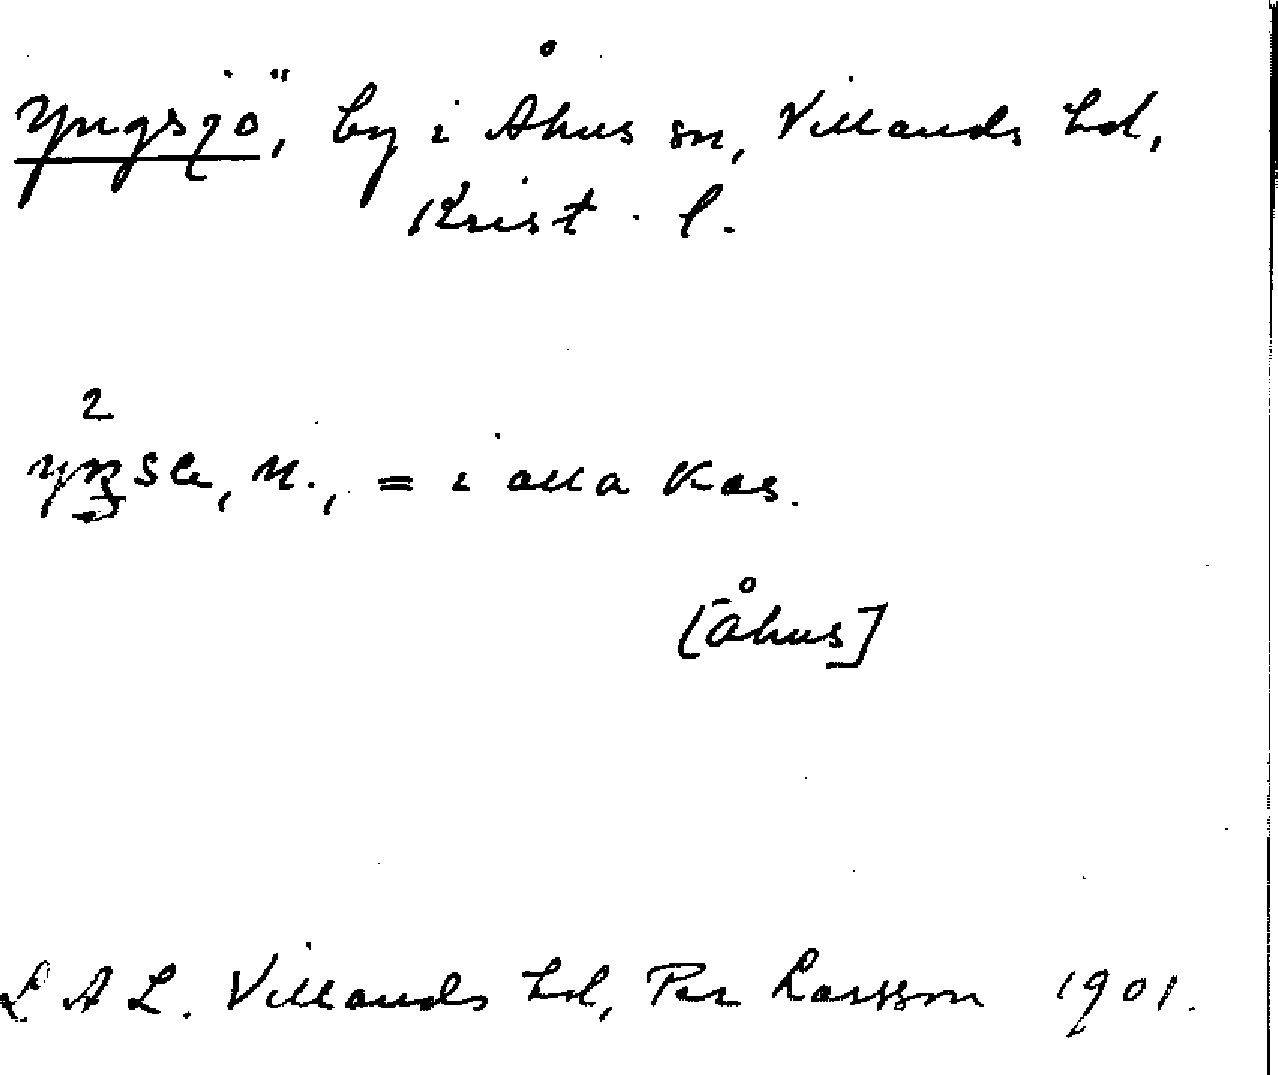 Yngsjö, by i Åhus sn, Villands hd,
Krist. l.
2
n., = i alla kas.
[Åhus]
L A L. Villands hd, Per Larsson 1901.